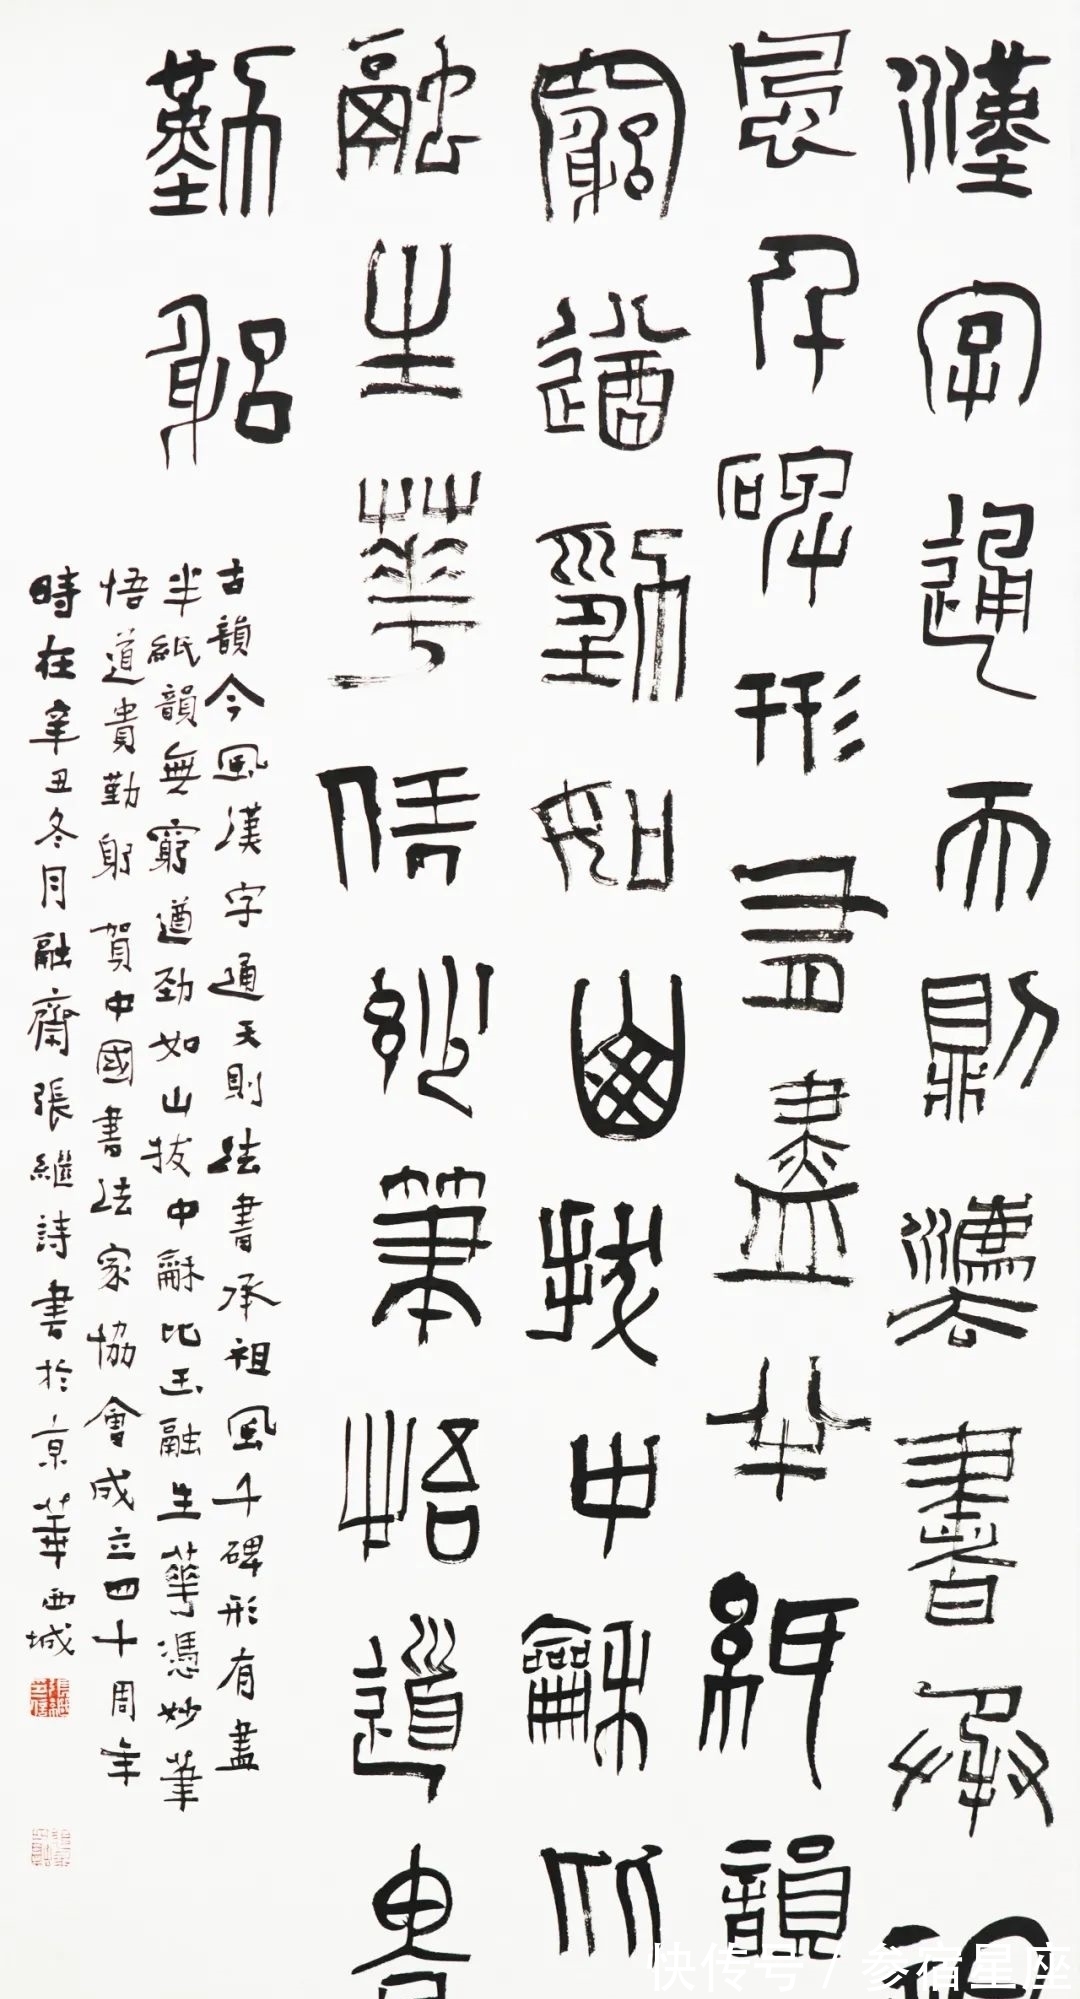 漢字通天則灋書承祖
風千碑形有盡半紙韻
窮遒勁如山拔中龢比
融生華憑妙筆悟道貴
勤躬
古韻今風漢字通天則法書承祖風千碑形有盡
半紙韻無窮遒勁如山拔中龢比玉融生華憑妙筆
悟道貴勤躬賀中國書法家協會成立四十周年
時在辛丑冬月融齋張繼詩書於京華西城
快传号 / 参宿星座